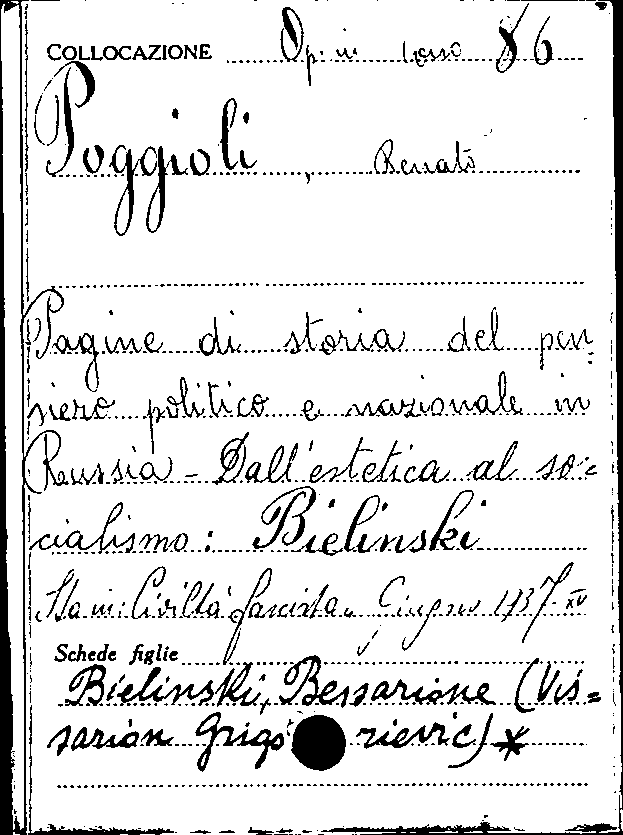 COLLOCAZIONE Op. in cono 86
Poggioli, Renato
Pagine di storia del pen=
siero politico e nazionale in
Russia - Dall'estetica al so=
cialismo: Bielinski
Sta in: Civiltà fascista, Giugno 1937-XV
Schede figlie
Bielinski, Bessarione (Vis=
sarion Grigorievic) *